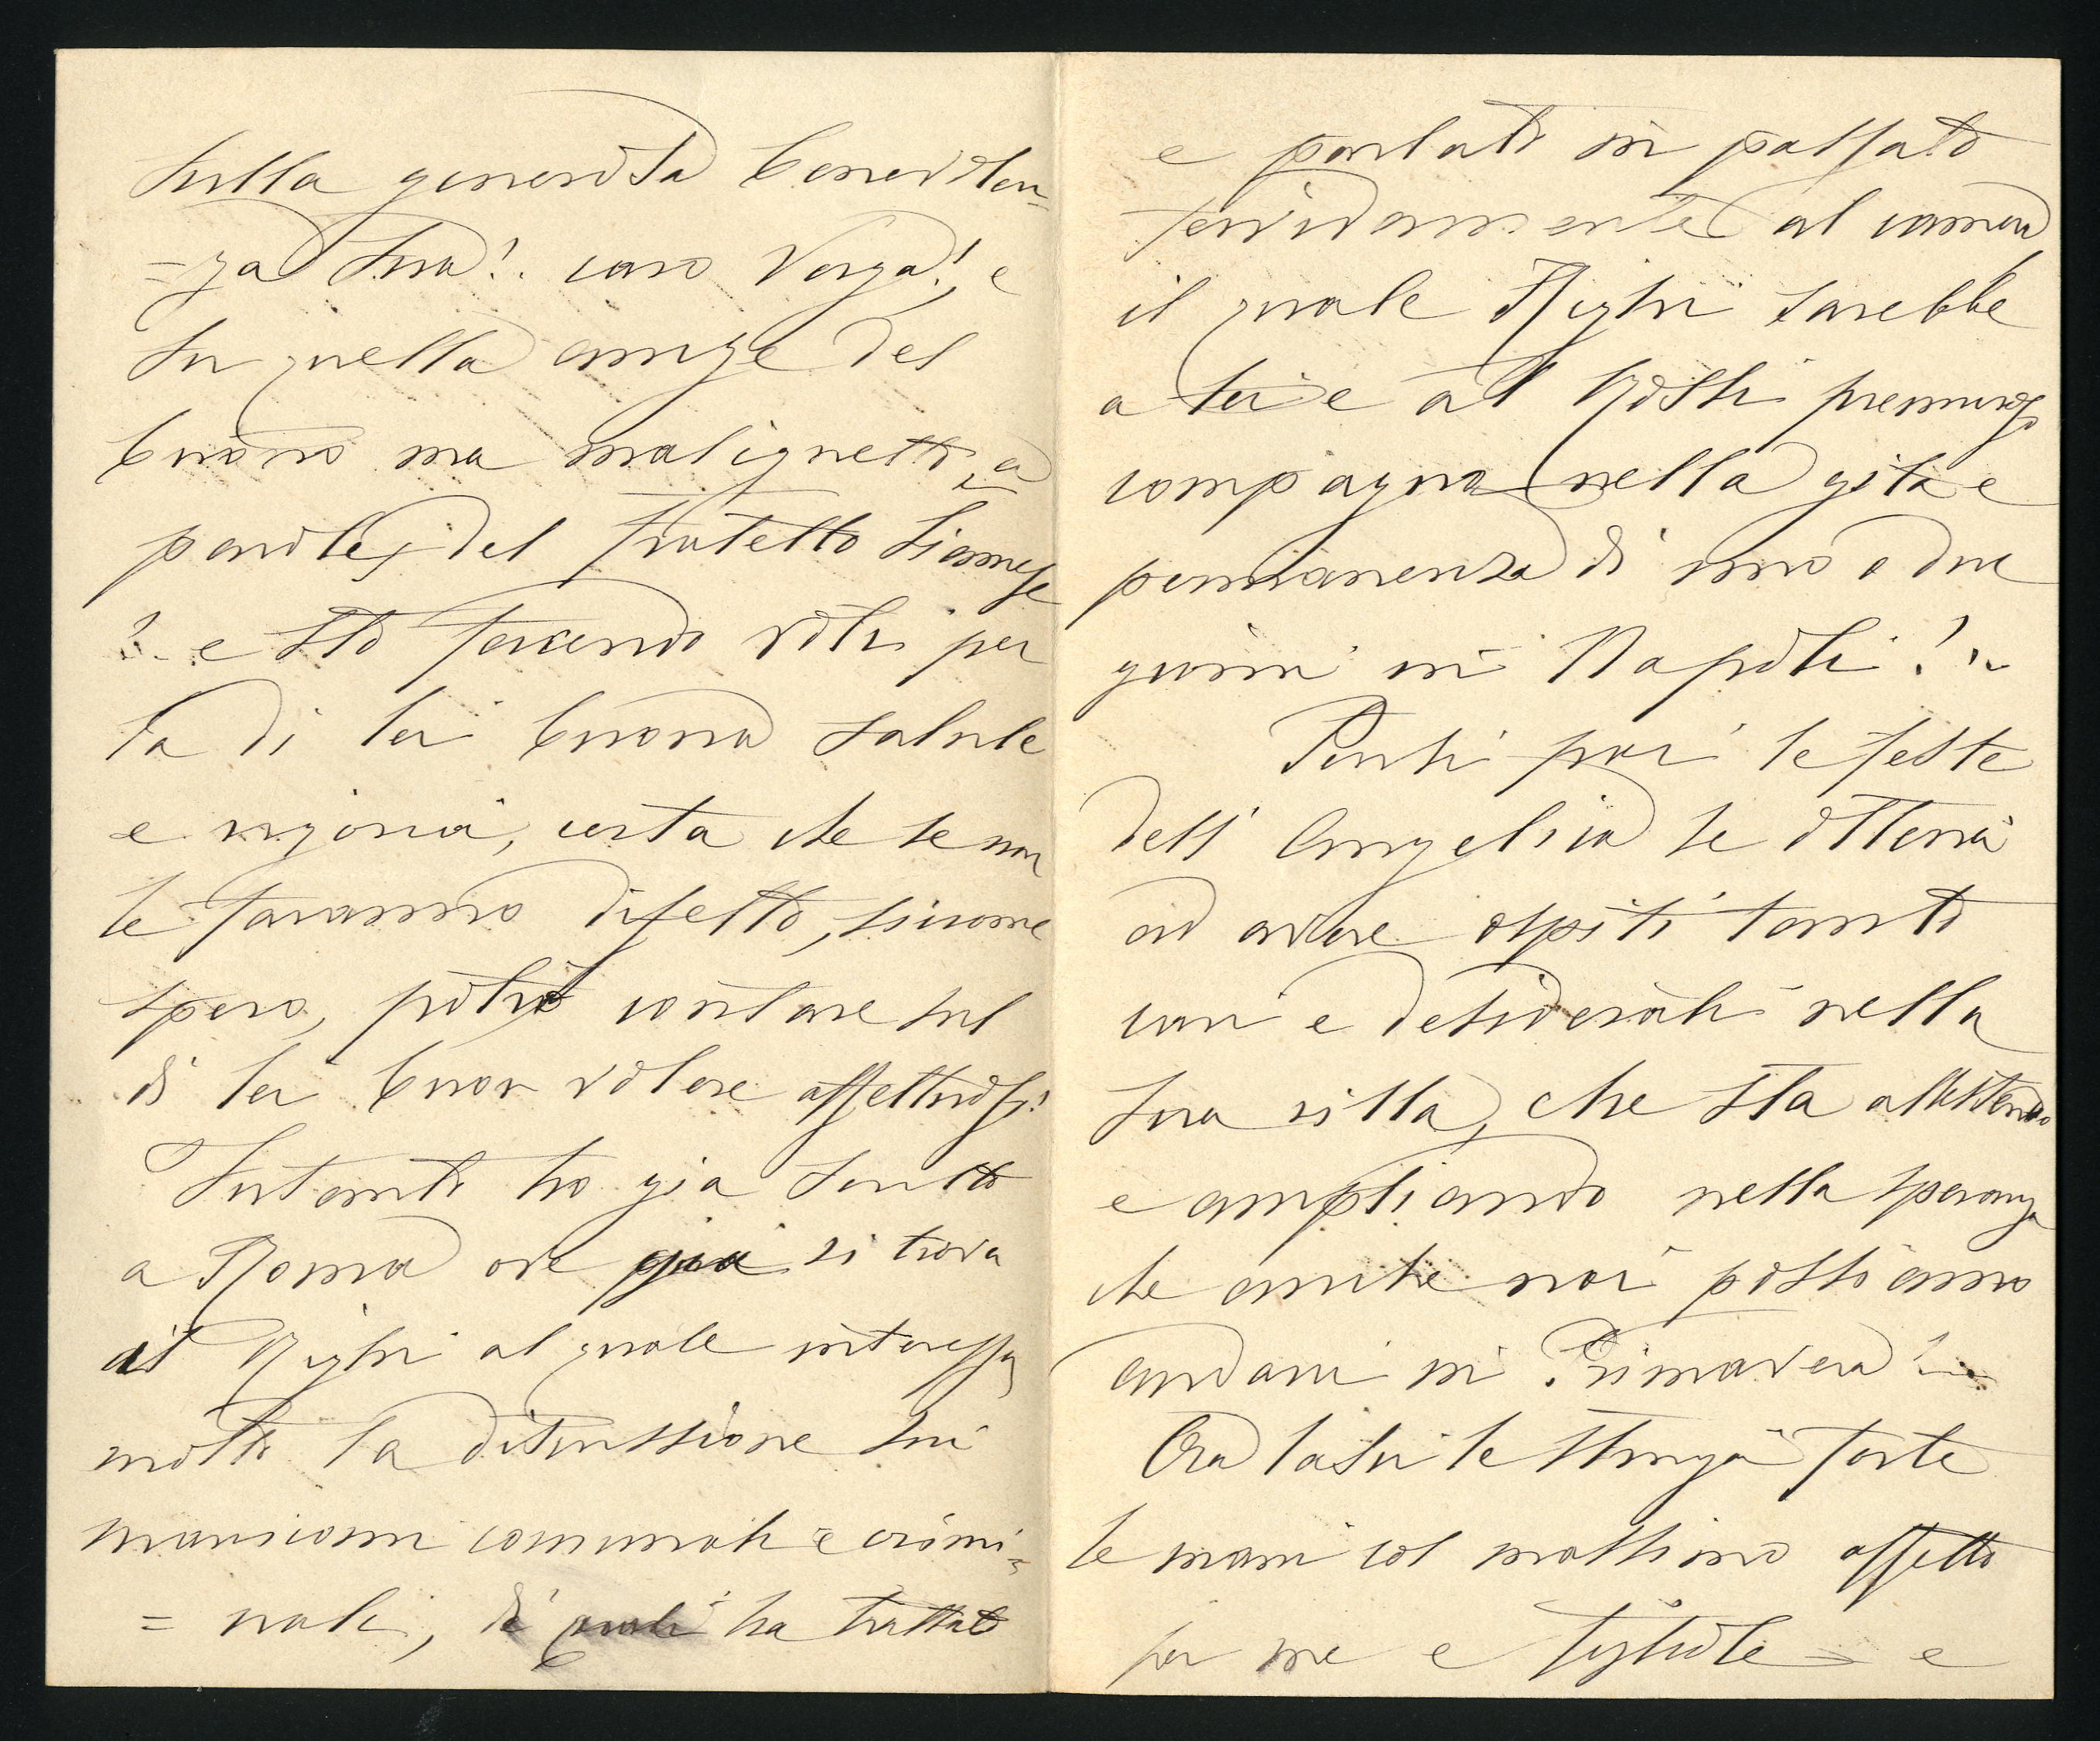 sulla generosa benevolen=
=za sua!.. caro Verga!, e
su quella anche del
buono ma malignetto, a
parole, del fratello Siamese
!.. e sto facendo voti per
la di lei buona salute
e vigoria, certa che se non
le faranno difetto, siccome
spero, potrò contare sul
di lei buon volere affettuoso!
Intanto ho già scritto
a Roma ove già si trova
il Righi al quale interessa
molto la discussione sui
manicomi comunali e crimi=
=nali, di quali ha trattato
e parlato in passato
fervidamente al camera
il quale Righi sarebbe
a lei e al Rossi premuroso
compagno nella gita e
permanenza di uno o due
giorni in Napoli!..
Pensi poi le feste
dell' Angelica se otterrà
ad avere ospiti tanto
cari e desiderati nella
sua villa, che sta allestendo
e ampliando nella speranza
che anche noi possiamo
andarvi in Primavera!..
Ora lasci le stringa forte
le mani col massimo affetto
per me e figliole e